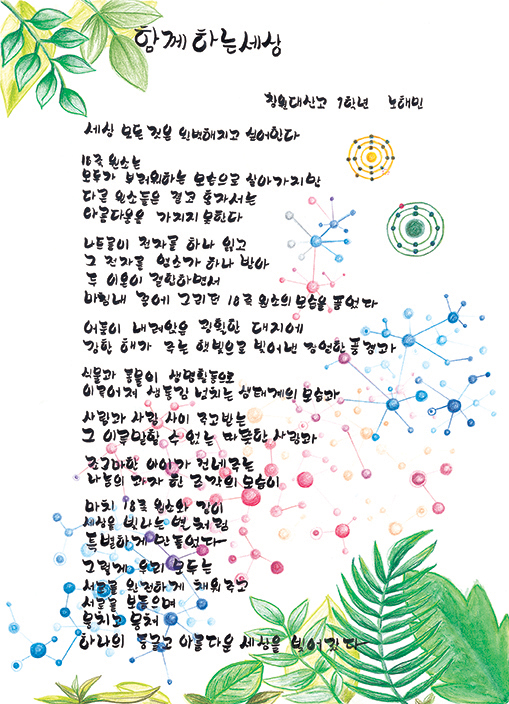 함께 하는 세상
창원대신고 1학년 노해민
세상 모든 것은 완벽해지고 싶어한다
18족 원소는
모두가 부러워하는 모습으로 살아가지만
다른 원소들은 결코 혼자서는
아름다움을 가지지 못한다
나트륨이 전자를 하나 잃고
그 전자를 염소가 하나 받아
두 이온이 결합하면서
마침내 꿈에 그리던 18족 원소의 모습을 품었다
어둠이 내려앉은 광활한 대지에
강한 해가 주는 햇빛으로 빚어낸 장엄한 풍경과
식물과 동물이 생명활동으로
이루어져 생동감 넘치는 생태계의 모습과
사람과 사람 사이 주고받는
그 이루말할 수 없는 따뜻한 사랑과
조그마한 아이가 건네주는
나눔의 과자 한 조각의 모습이
마치 18족 원소와 같이
세상을 빛나는 별처럼
특별하게 만들었다
그렇게 우리 모두는
서로를 완전하게 채워주고
서로를 보듬으며
뭉치고 뭉쳐
하나의 둥글고 아름다운 세상을 빚어갔다